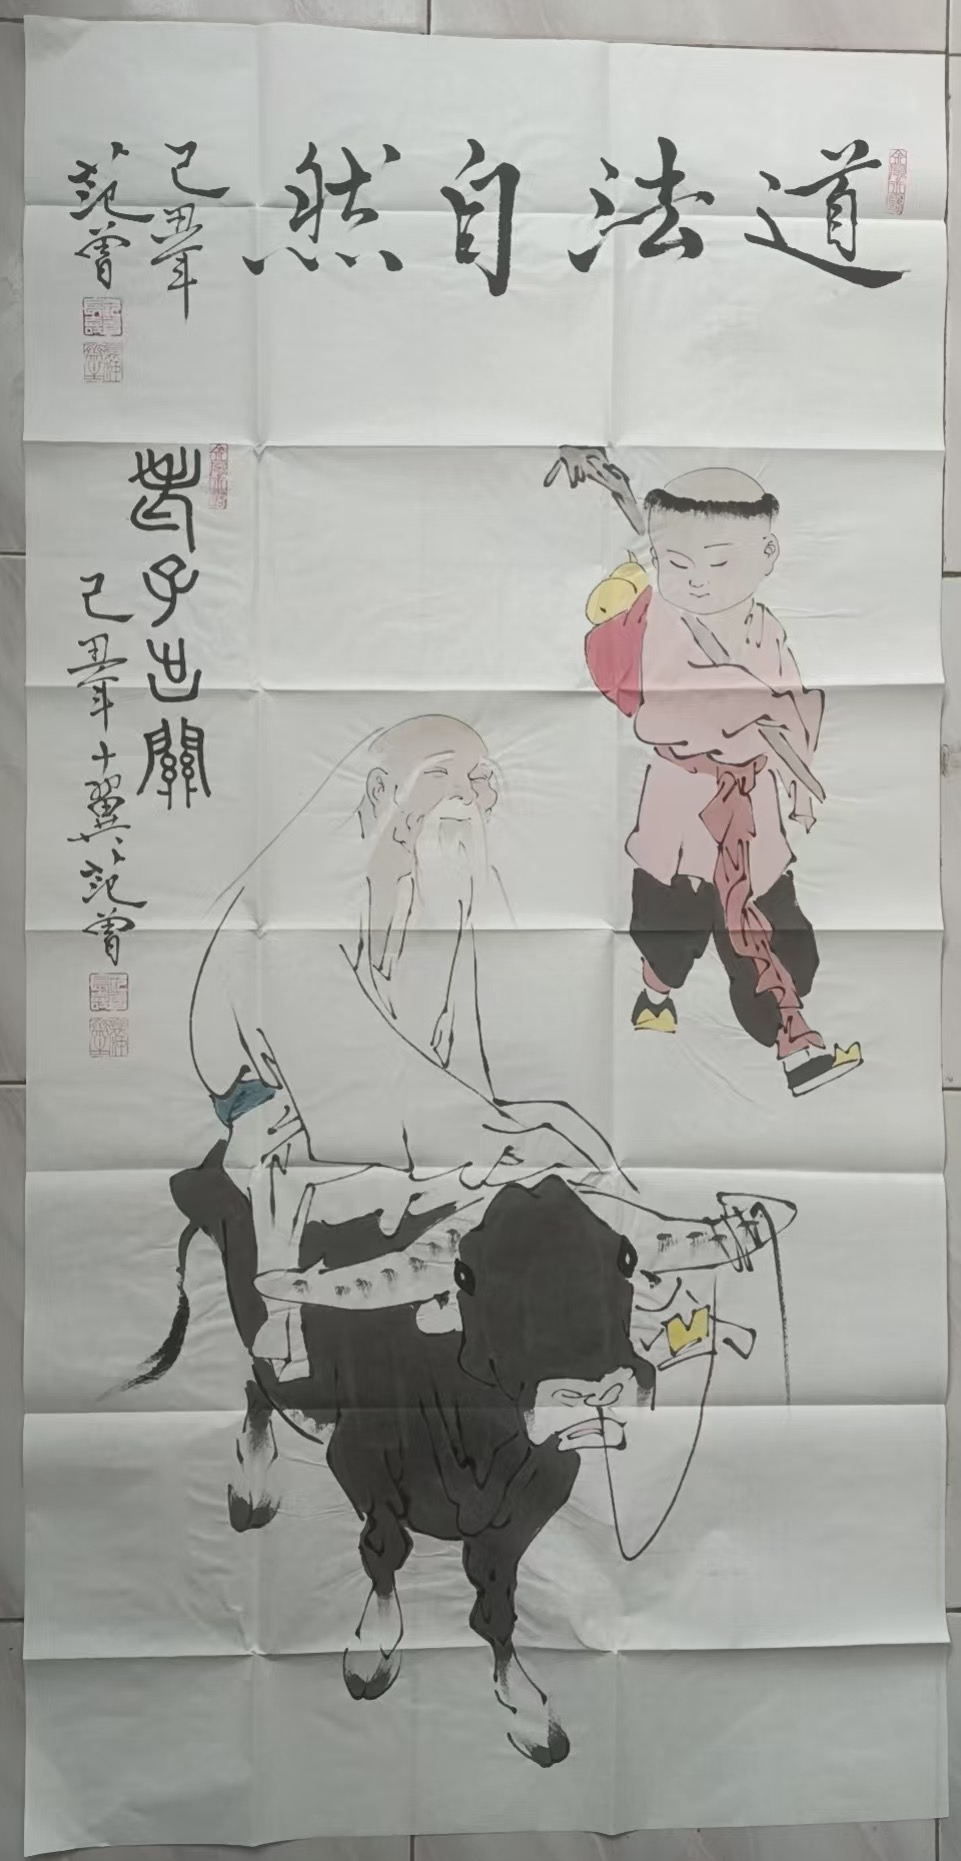 道法自然
己丑年
范曾
老子出關
己丑年十翼范曾